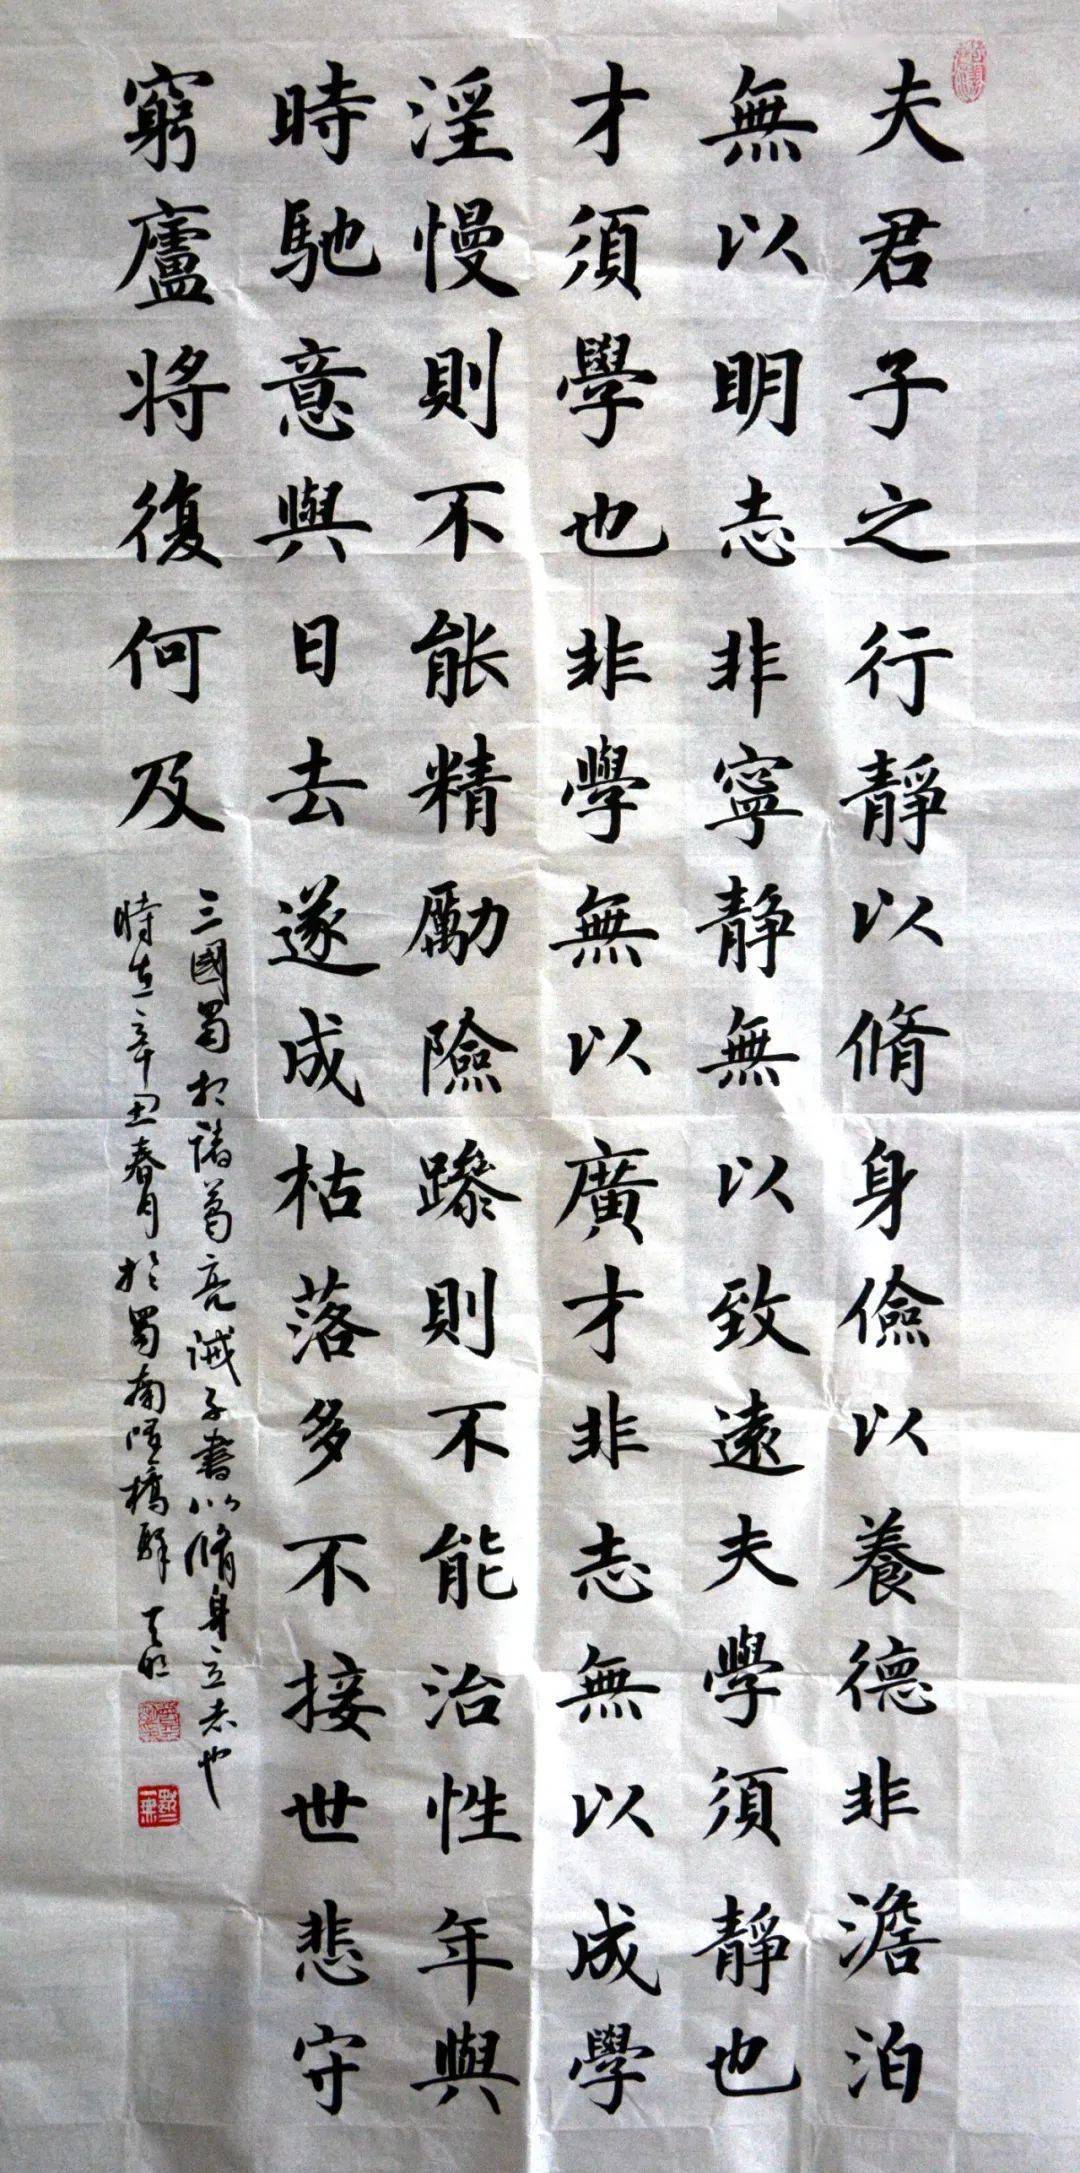 夫君子之行靜以脩身儉以養德非澹泊
無以明志非寧静無以致遠夫學須靜也
才須學也非學無以廣才非志無以成學
淫慢則不能精勵險躁則不能治性年與
時馳意與日去遂成枯落多不接世悲守
窮廬將復何及
三國蜀相諸葛亮誡子書以脩身立志也
時在辛丑春月於蜀南